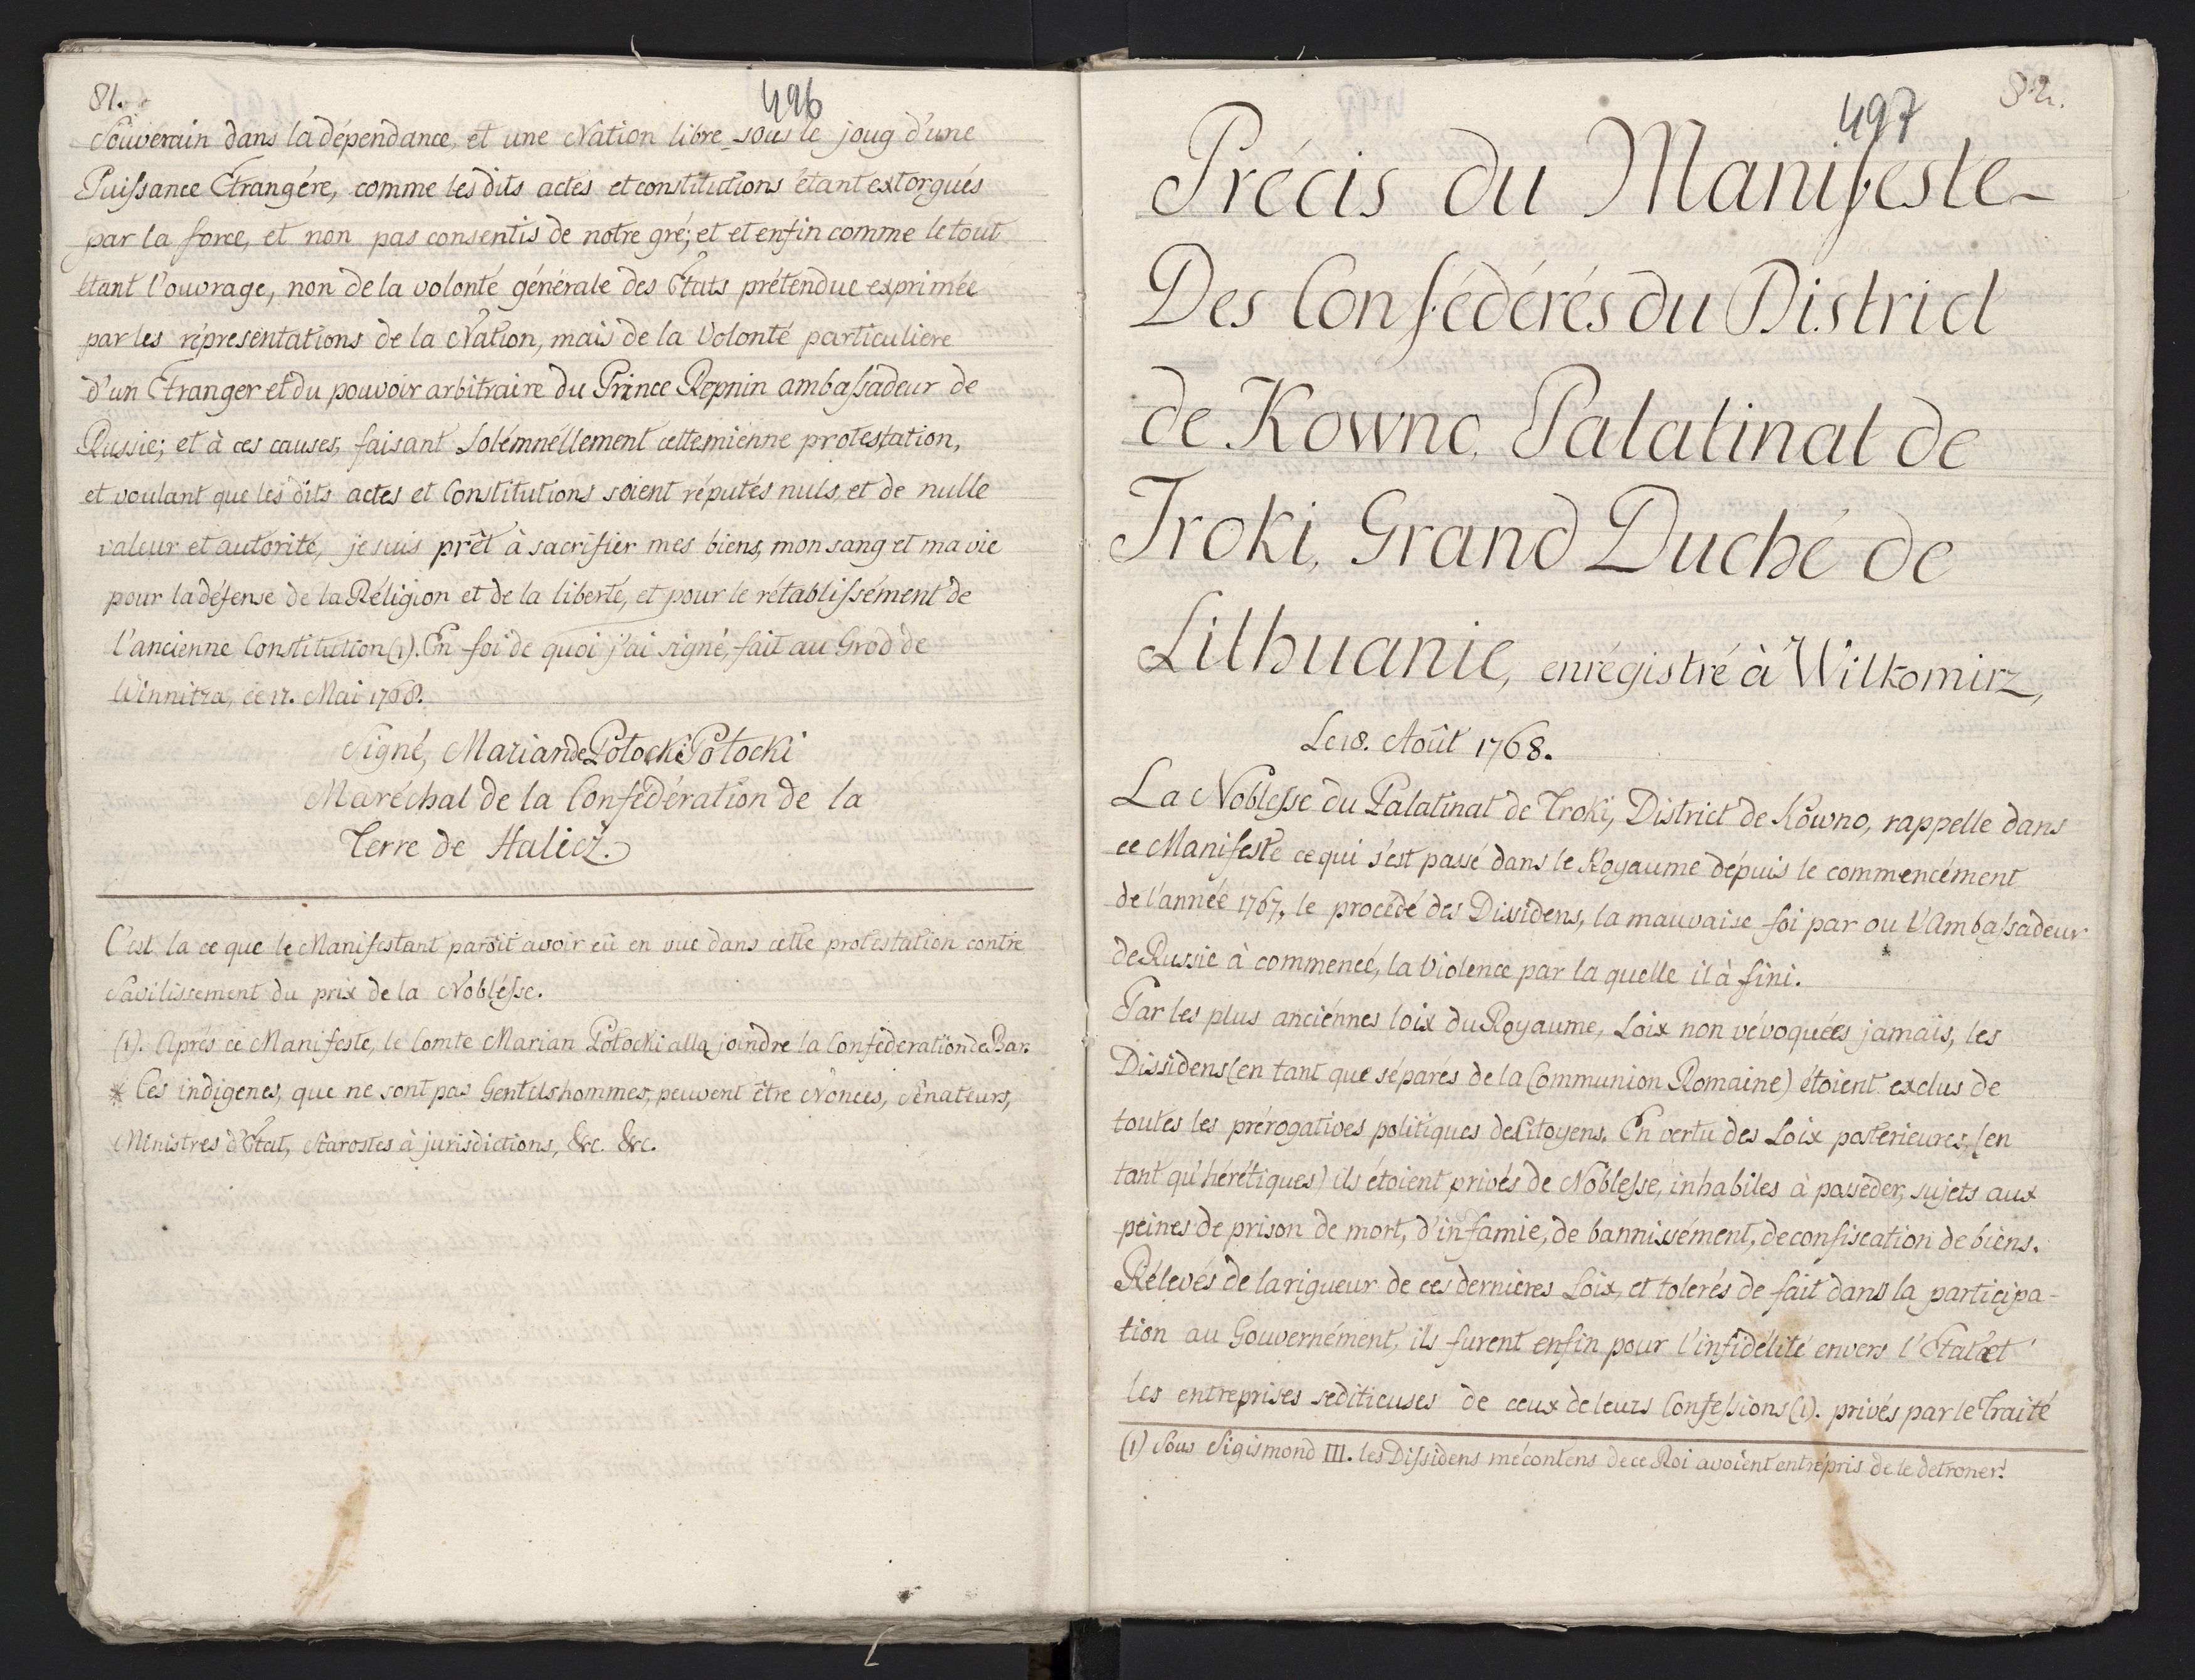 81.
496
Souverain dans la dépendance, et une Nation libre sous le joug d'une
Puissance Etrangére, comme les dits actes et constitutions étant extorqués
par la force, et non pas consentis de notre gré; et et enfin comme le tout
étant l'ouvrage, non de la volonté générale des Etats prétendue exprimée
par les répresentations de la Nation, mais de la Volonté particuliere
d'un Etranger et du pouvoir arbitraire du Prince Repnin ambassadeur de
Russie; et à ces causes, faisant Solémnéllement cette miénne protestation,
et voulant que les dits actes et Constitutions soient réputés nuls, et de nulle
valeur et autorité, je suis prêt à sacrifier mes biens, mon sang et ma vie
pour la défense de la Réligion et de la liberté, et pour le rétablissément de
l'ancienne Constitution (1). En foi de quoi j'ai signé, fait au Grod de
Winnitza, ce 17. Mai 1768.
Signé, Marian de Potocki Potocki
Maréchal de la Confédération de la
Terre de Halicz.
C'est la ce que le Manifestant paroit avoir eû en vue dans cette protestation contre
l'avilissement du prix de la Noblésse.
(1). Aprés ce Manifeste, le Comte Marian Potocki alla joindre la Confederation de Bar.
* Ces indigenes, que ne sont pas Gentilshommes, peuvent être Nonces, Sénateurs,
Ministres d'Etat, Starostes à jurisdictions, &c. &c.
497
82.
Précis du Manifeste
Des Confédérés du District
de Kowno, Palatinat de
Troki, Grand Duché de
Lithuanie, enrégistré à Wilkomirz,
Le 18. Août 1768.
La Noblesse du Palatinat de Troki, District de Kowno, rappelle dans
ce Manifeste ce qui s'est passé dans le Royaume dépuis le commencément
de l'année 1767, le procédé des Dissidens, la mauvaise foi par ou l'Ambassadeur
de Russie à commencé, la Violence par la quelle il à fini.
Par les plus anciénnes loix du Royaume, Loix non vévoquées jamais, les
Dissidens (en tant que séparés de la Communion Romaine) étoient exclus de
toutes les prérogatives politiques de Citoyens. En vertu des Loix posterieures, (en
tant qu'hérétiques) ils étoient privés de Noblesse, inhabiles à posséder, sujets aux
peines de prison de mort, d'infamie, de bannissément, de confiscation de biens.
Rélevés de la rigueur de ces dernieres Loix, et tolerés de fait dans la participa-
tion au Gouvernément, ils furent enfin pour l'infidélité envers l'Etat et
les entreprises seditieuses de ceux de leurs Confessions (1). privés par le Traité
(1) Sous Sigismond III. les Dissidens mécontens de ce Roi avoient entrépris de le detroner.